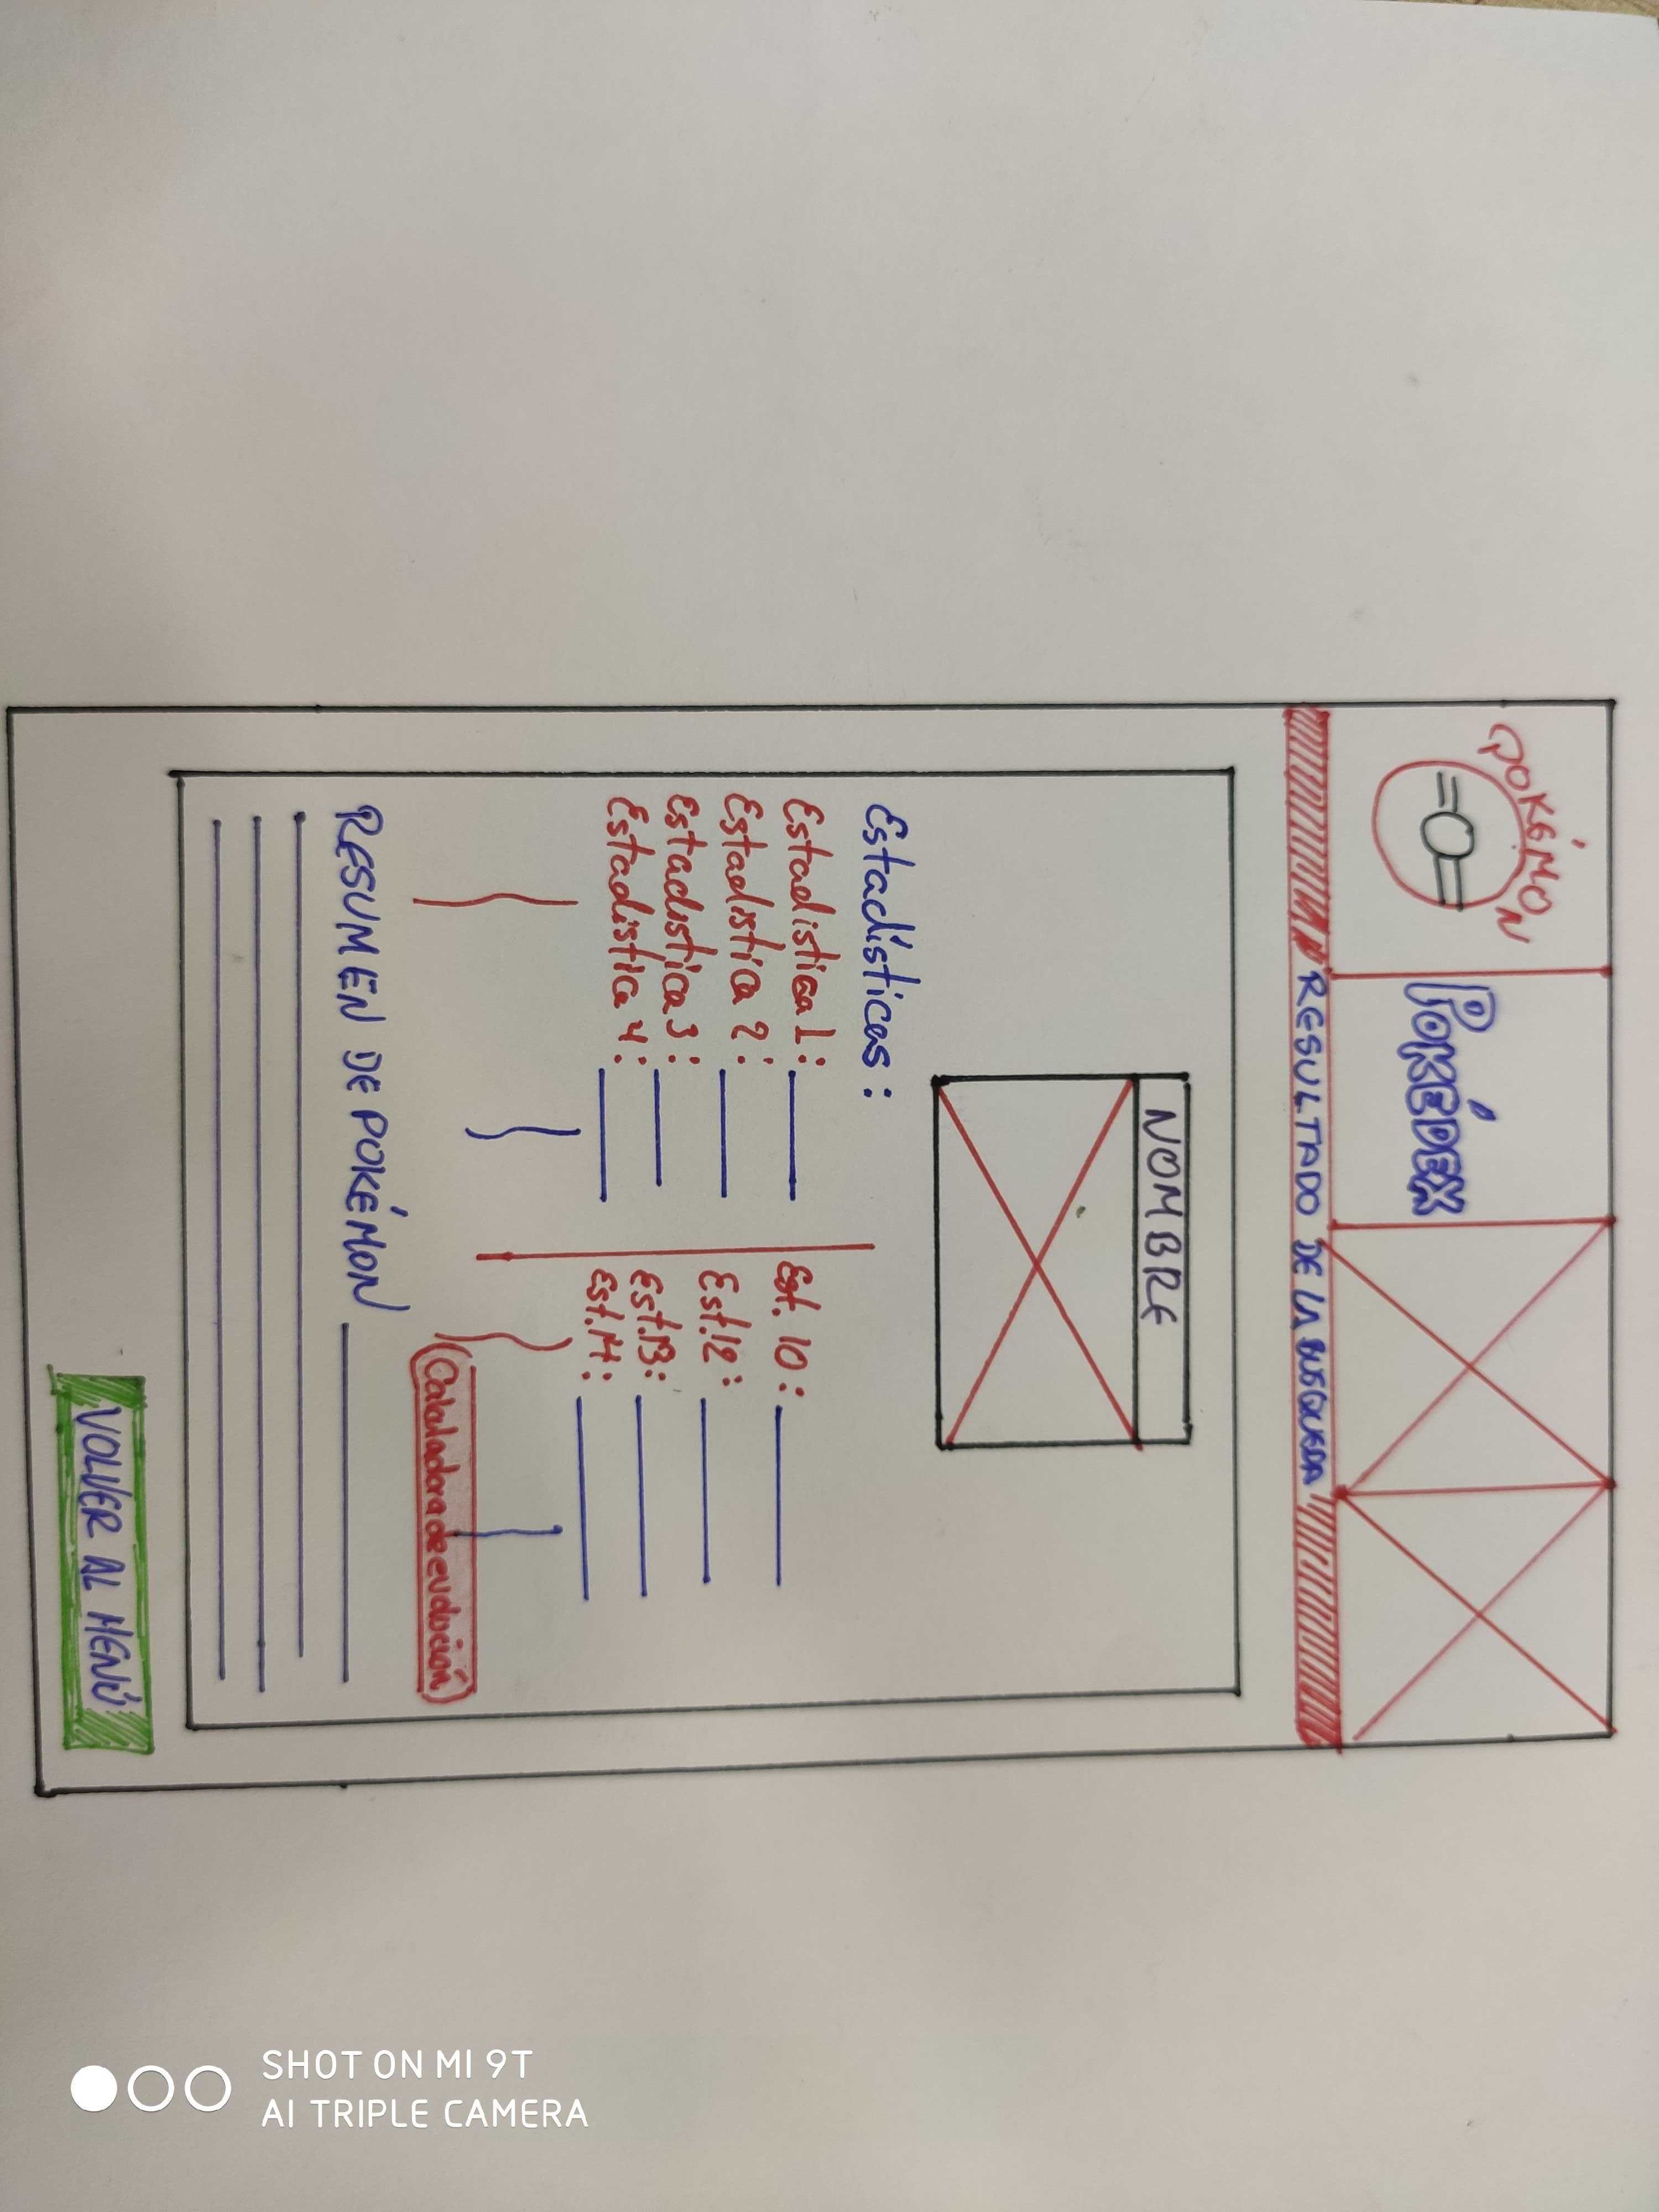 POKÉMON
POKÉDEX
RESULTADO DE LA BUSQUEDA
NOMBRE
Estadísticas:
Estadistica 1:
Estadistica 2:
Estadistica 3:
Estadistica 4:
Est. 10:
Est.12:
Est.13:
Est.14:
Calculadora de evolución
RESUMEN DE POKÉMON
VOLVER AL MENÚ
SHOT ON MI 9T
AI TRIPLE CAMERA